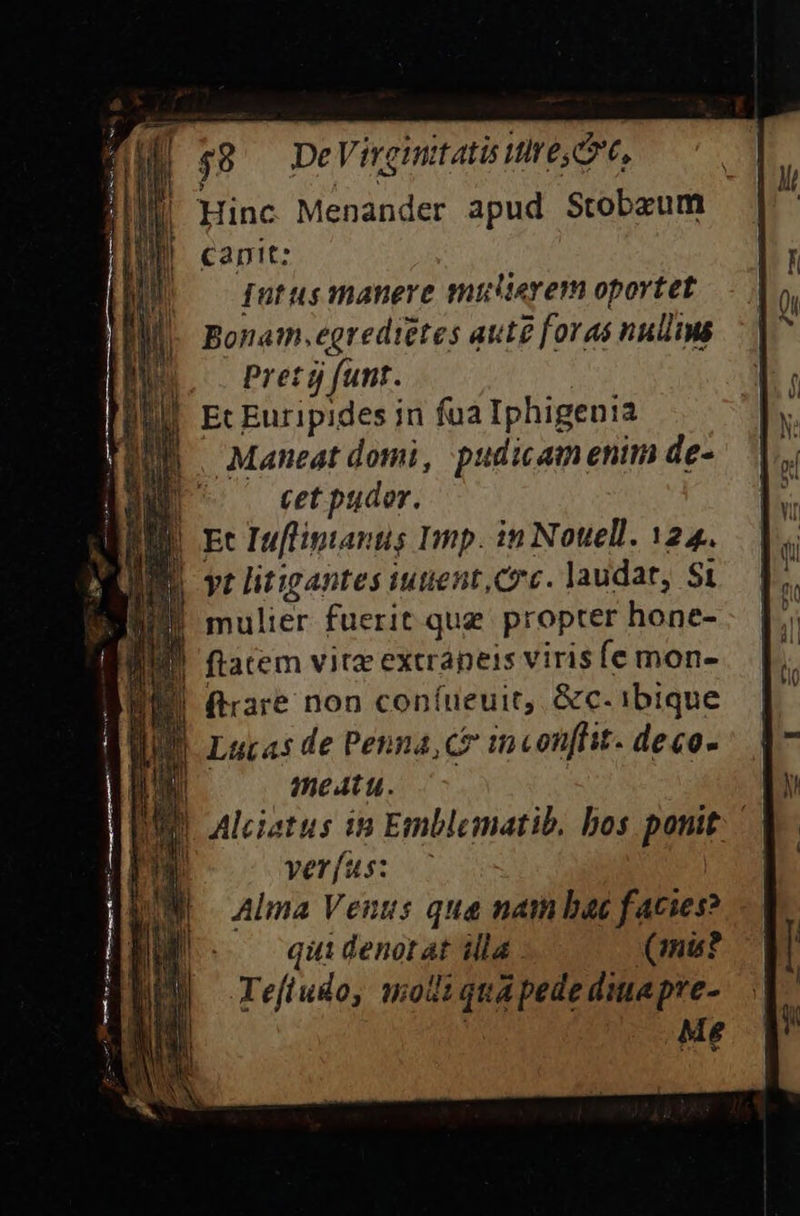 58 De Virginitatis iure, &c,
Hinc Menander apud Stobæum
canit:
Intus manere mulierem oportet
Bonam. egrediẽtes autẽ foras nullius
Pretij ſunt.
Et Euripides in ſua Iphigenia
Maneat domi, pudicam enim de-
cet pudor.
Et Iuſtinianus Imp. in Nouell. 124.
vt litigantes iurent, &c. laudat, Si
mulier fuerit quæ propter hone-
ſtatem vitæ extraneis viris ſe mon-
ſtrare non conſueuit, &c. ibique
Lucas de Penna, & in conſtit. de co-
meatu.
Alciatus in Emblematib. hos ponit
verſus:
Alma Venus quæ nam hac facies?
qui denotat illa (mis?
Teſtudo, molli quã pede diua pre-
Me